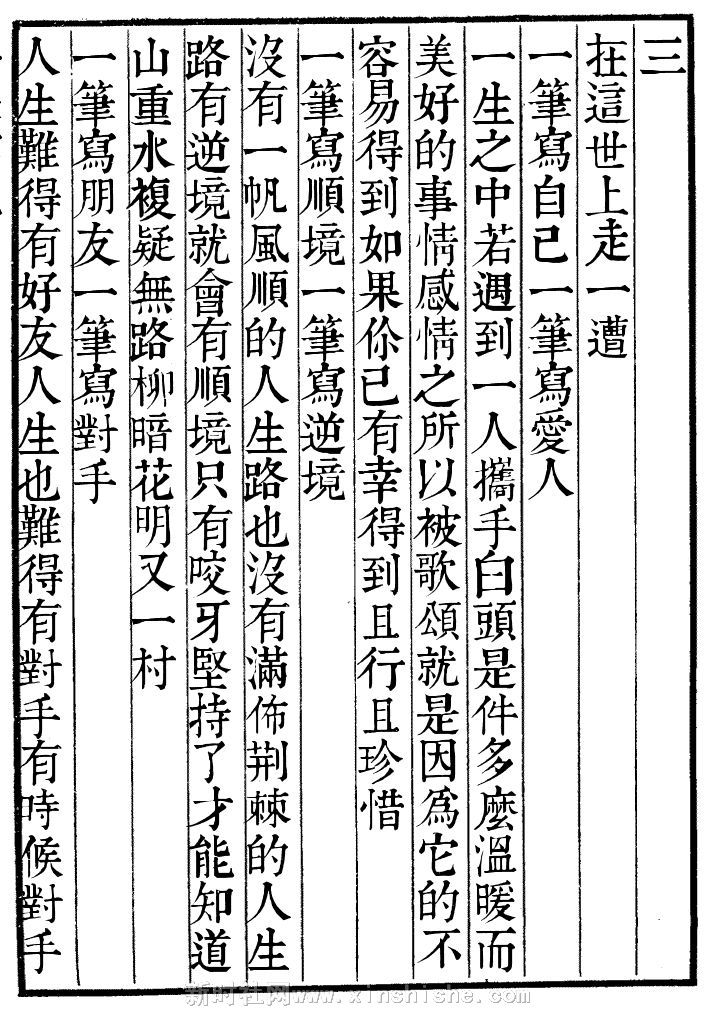 三
在這世上走一遭
一筆寫自己一筆寫愛人
一生之中若遇到一人攜手白頭是件多麼溫暖而
美好的事情感情之所以被歌頌就是因為它的不
容易得到如果你已有幸得到且行且珍惜
一筆寫順境一筆寫逆境
沒有一帆風順的人生路也沒有滿佈荆棘的人生
路有逆境就會有順境只有咬牙堅持了才能知道
山重水複疑無路柳暗花明又一村
一筆寫朋友一筆寫對手
人生難得有好友人生也難得有對手有時候對手
新时社网www.xinshishe.com